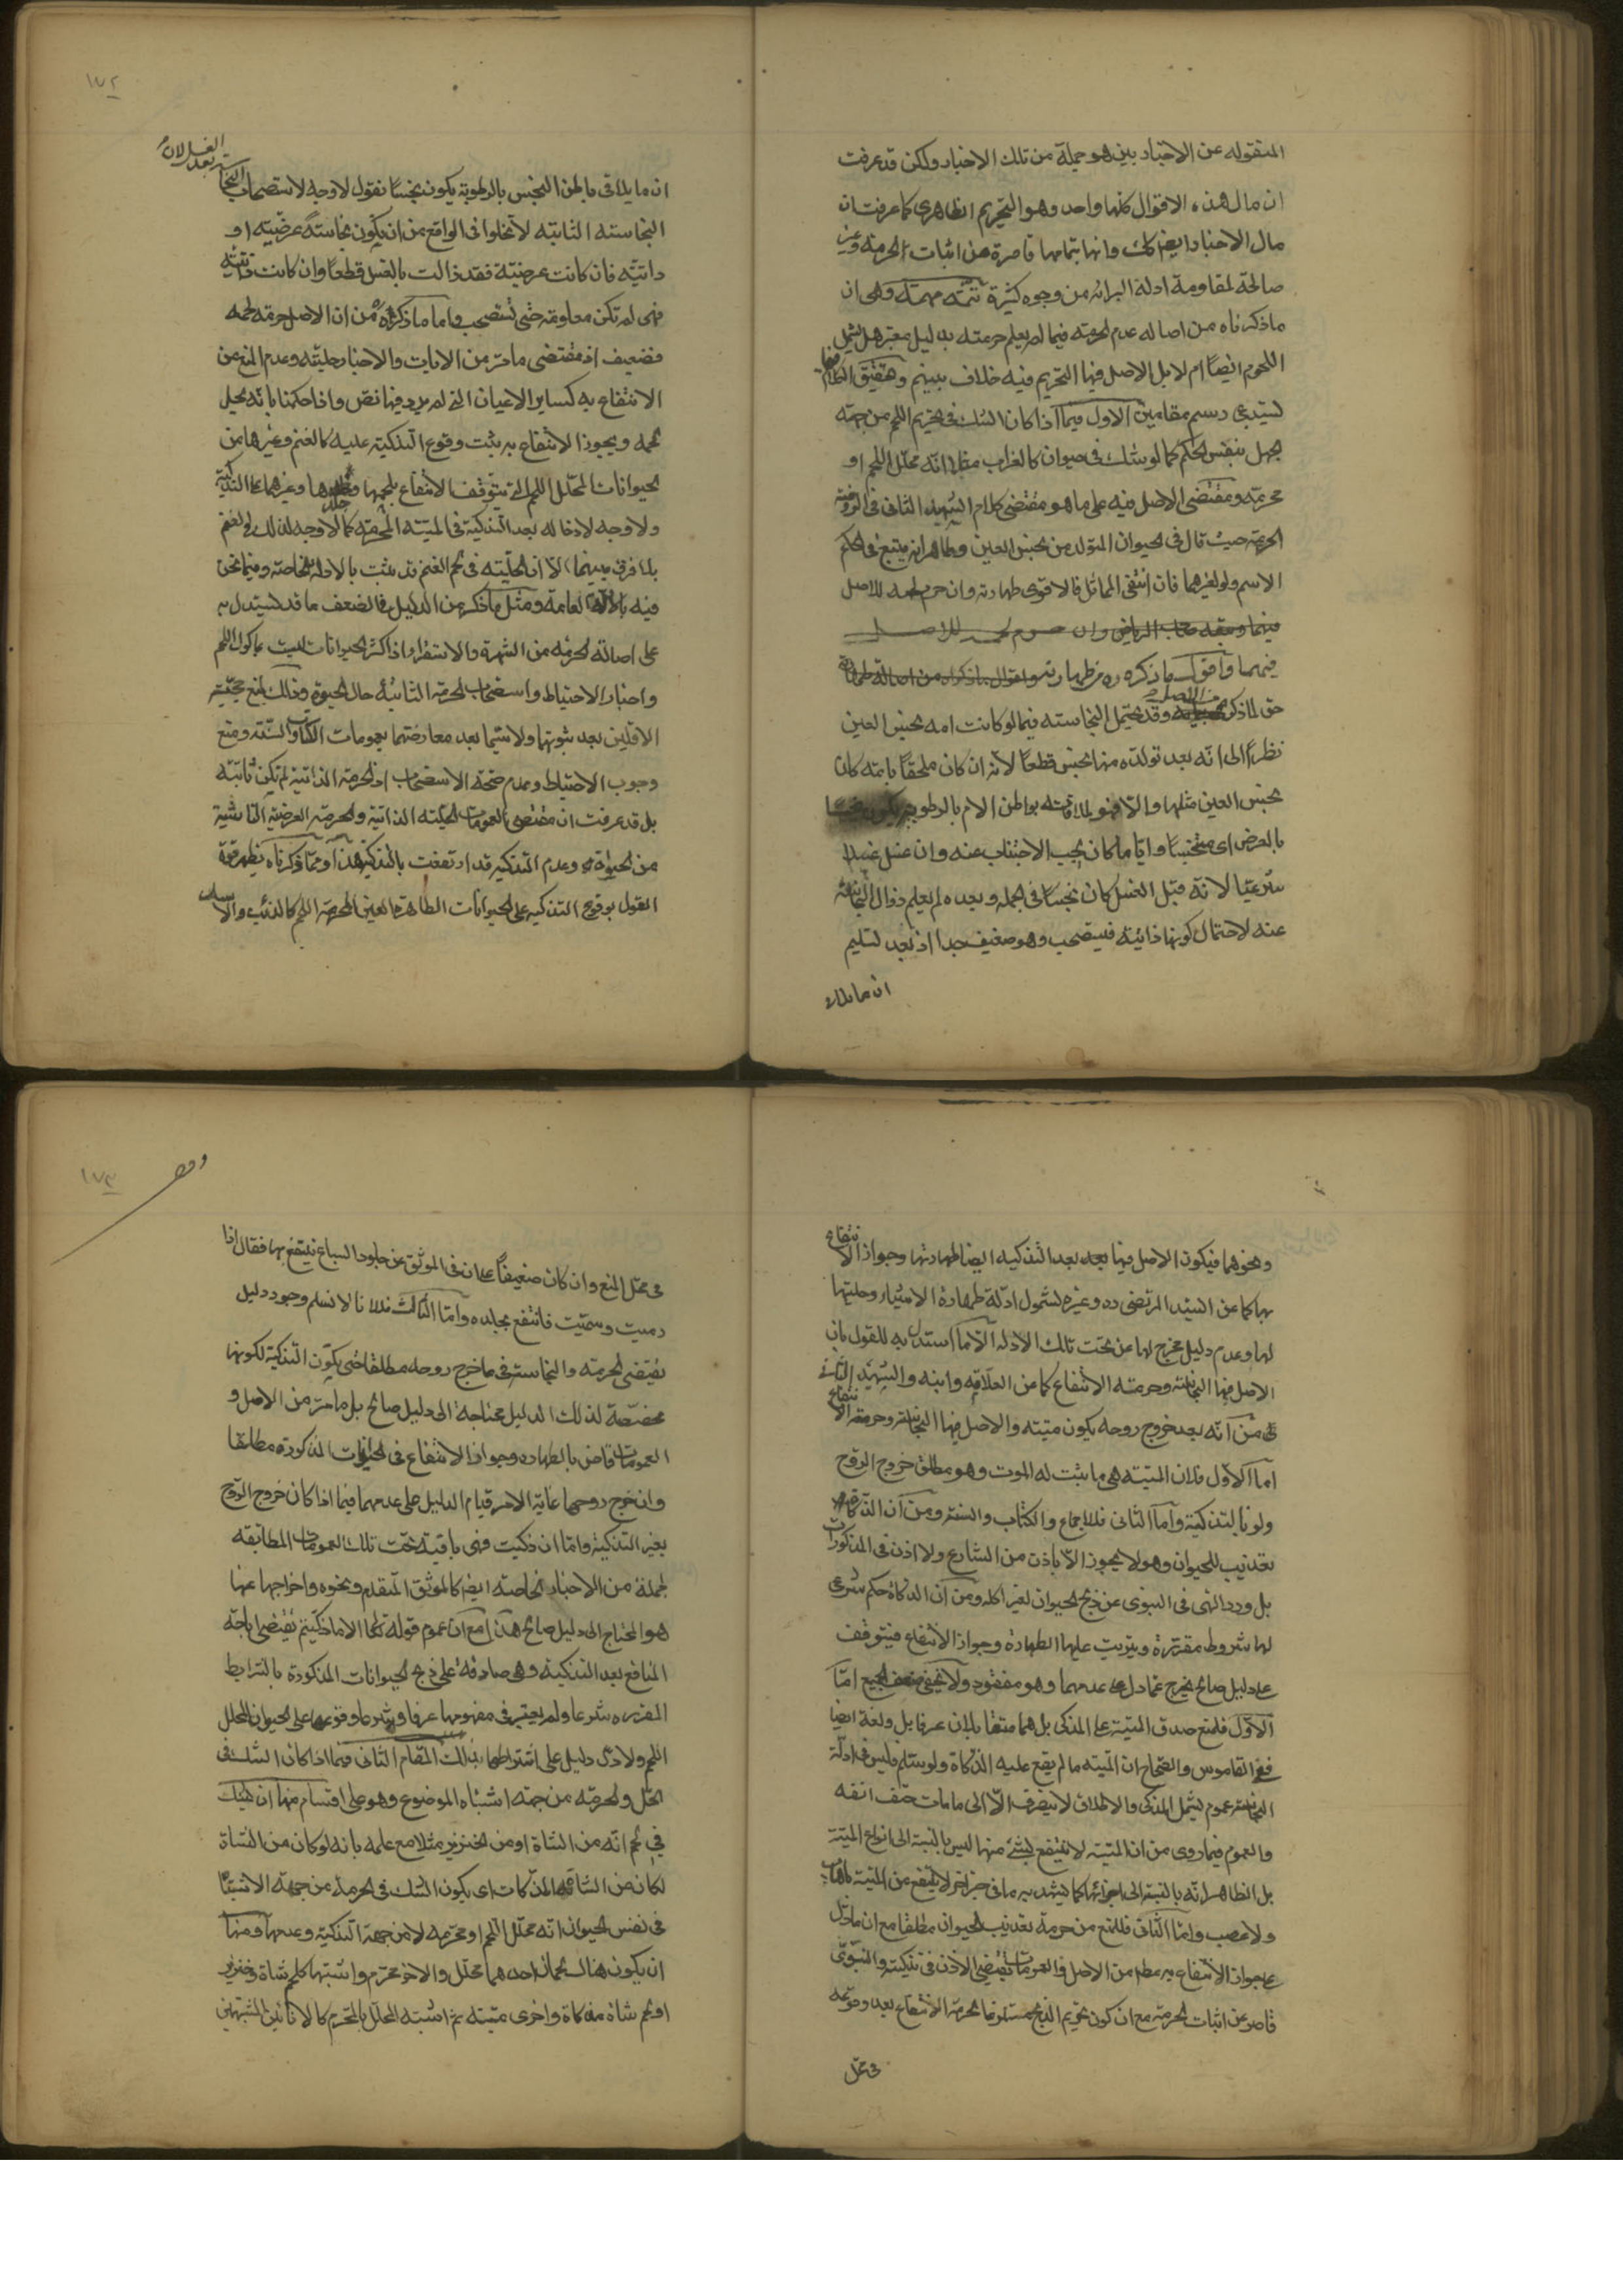 المنقوله عن الاخبار بين هو جملة من تلك الاخبار ولكن قد عرفت
ان مال هذه الاقوال كلها واحد وهو التحريم الظاهرى كما عرفت ان
مال الاخبار ايضا كك وانها بتمامها قاصرة عن اثبات الحرمة وغير
صالحة لمقاومة ادلة البرائه من وجوه كثيرة تتمة مهمة وهى ان
ما ذكرناه من اصالة عدم الحرمة فيما لم يعلم حرمته بدليل معتبر هل يشمل
اللحوم ايضا ام لا بل الاصل فيها التحريم فيه خلاف بينهم وتحقيق الكلام فيها
يستدعى رسم مقامين الاول فيما اذا كان الشك فى تحريم اللحم من جهة
الجهل بنفس الحكم كما لو شك فى حيوان كالغراب مثلا انه محلل اللحم او
محرمه ومقتضى الاصل فيه على ما هو مقتضى كلام الشهيد الثانى فى الروضة
الحرمة حيث قال فى الحيوان المتولد من نجس العين وطاهر انه يتبع فى الحكم
الاسم ولو لغيرهما فان انتفى المماثل فالاقوى طهارته وان حرم لحمه للاصل
فيهما وأقول ما ذكره ره من طهارته
حق لما ذكر من الاصل وقد يحتمل النجاسته فيما لو كانت امه نجس العين
نظرا الى انه بعد تولده منها نجس قطعا لانه ان كان ملحقا بامه كان
نجس العين مثلها والا فهو لملاقته بواطن الام بالرطوبه يكون نجسا
بالعرض اى متنجسا واياما كان يجب الاجتناب عنه وان غسل غسلا
شرعيا لانه قبل الغسل كان نجسا فى الجمله وبعده لم يعلم زوال النجاسة
عنه لاحتمال كونها ذاتيه فيستصحب وهو ضعيف جدا اذ بعد تسليم
ان ما يلاقى
١٧٢
ان ما يلاقى باطن النجس بالرطوبة يكون نجسا نقول لا وجه لاستصحاب النجاسة بعد الغسل لان
النجاسته الثابته لا تخلوا فى الواقع من ان يكون نجاسته عرضيه او
ذاتيه فان كانت عرضيه فقد زالت بالغسل قطعا وان كانت ذاتيه
فهى لم تكن معلومة حتى تستصحب واما ما ذكره من ان الاصل حرمة لحمه
فضعيف اذ مقتضى ما مر من الايات والاخبار حليته وعدم المنع من
الانتفاع به كساير الاعيان التى لم يرد فيها نص واذا حكمنا بانه يحل
لحمه ويجوز الانتفاع به يثبت وقوع التذكية عليه كالغنم وغيرها من
الحيوانات المحلل اللحم التى يتوقف الانتفاع بلحمها وجلدها وغيرهما على التذكية
ولا وجه لادخاله بعد التذكية فى الميتة المحرمة كما لا وجه لذلك فى الغنم
بلا فرق بينهما الا ان الحلية فى لحم الغنم قد يثبت بالادلة الخاصة وفيما نحن
فيه بالادلة العامة ومثل ما ذكر من الدليل فى الضعف ما قد يستدل به
على اصالة الحرمة من الشهرة والاستقراء اذ اكثر الحيوانات ليست ماكول اللحم
واخبار الاحتياط واستصحاب الحرمة الثابتة حال الحيوة وذلك لمنع حجية
الاولين بعد ثبوتها ولا سيما بعد معارضتهما بعمومات الكتاب والسنة ومنع
وجوب الاحتياط وعدم صحة الاستصحاب اذ الحرمة الذاتية لم تكن ثابتة
بل قد عرفت ان مقتضى العمومات الحلية الذاتية والحرمة العرضية الناشية
من الحيوة وعدم التذكية قد ارتفعت بالتذكية هذا ومما ذكرناه يظهر قوة
القول بوقوع التذكية على الحيوانات الطاهرة العين المحرمة اللحم كالذئب والاسد
ونحوهما فيكون الاصل فيها بعد التذكيه ايضا طهارتها وجواز الانتفاع
بها كما عن السيد المرتضى ره وغيره لشمول ادلة طهارة الاشياء وحليتها
لها وعدم دليل مخرج لها عن تحت تلك الادله الا ما استدل به للقول بان
الاصل فيها النجاسة وحرمته الانتفاع كما عن العلامة وابنه والشهيد الثانى
من انه بعد خروج روحه يكون ميتة والاصل فيها النجاسة وحرمة الانتفاع
اما الاول فلان الميته هى ما يثبت له الموت وهو مطلق خروج الروح
ولو بالتذكية واما الثانى فللاجماع والكتاب والسنة ومن ان الذكاة
تعذيب للحيوان وهو لا يجوز الا باذن من الشارع ولا اذن فى المذكورات
بل ورد النهى فى النبوى عن ذبح الحيوان لغير اكله ومن ان الذكاة حكم شرعى
لها شروط مقررة ويترتب عليها الطهارة وجواز الانتفاع فيتوقف
على دليل صالح يخرج عما دل على عدمهما وهو مفقود ولا يخفى ضعف الجميع اما
الاول فلمنع صدق الميتة على المذكى بل هما متقابلان عرفا بل ولغة ايضا
ففى القاموس والصحاح ان الميته ما لم يقع عليه الذكاة ولو سلم فليس فى ادلة
النجاسة عموم يشمل المذكى والاطلاق لا ينصرف الا الى ما مات حتف انفه
والعموم فيما روى من ان الميتة لا ينتفع بشئ منها ليس بالنسبة الى انواع الميتة
بل الظاهر انه بالنسبة الى اجزائها كما يشهد به ما فى خبر اخر لا ينتفع من الميتة باهاب
ولا عصب واما الثانى فللمنع من حرمة تعذيب الحيوان مطلقا مع ان ما دل
على جواز الانتفاع به من الاصل والعمومات يقتضى الاذن فى تذكيته والنبوى
قاصر عن اثبات الحرمة مع ان كون تحريم الذبح مستلزما لحرمة الانتفاع بعد وقوعه
فى محل
١٧٣
وقف
فى محل المنع وان كان ضعيفا على ان فى الموثق عن جلود السباع ينتفع بها فقال اذا
رميت وسميت فانتفع بجلده واما الثالث فلانا لا نسلم وجود دليل
يقتضى الحرمة والنجاسة فى ما خرج روحه مطلقا حتى يكون التذكية لكونها
مخصصة لذلك الدليل محتاجة الى دليل صالح بل ما مر من الاصل و
العمومات قاض بالطهارة وجواز الانتفاع فى الحيوانات المذكورة مطلقا
وان خرج روحها غاية الامر قيام الدليل على عدمهما فيما اذا كان خروج الروح
بغير التذكية واما ان ذكيت فهى باقية تحت تلك العمومات المطابقه
لجملة من الاخبار الخاصة ايضا كالموثق المتقدم ونحوه واخراجها عنها
هو المحتاج الى دليل صالح هذا مع ان عموم قوله تعالى الا ما ذكيتم يقتضى اباحة
المنافع بعد التذكية وهى صادقة على ذبح الحيوانات المذكورة بالشرايط
المقرره شرعا ولم يعتبر فى مفهومها عرفا وشرعا وقوعها على الحيوان المحلل
اللحم ولا دل دليل على اشتراطهما بذلك المقام الثانى فيما اذا كان الشك فى
الحل والحرمة من جهة اشتباه الموضوع وهو على اقسام منها ان يشك
فى لحم انه من الشاة او من الخنزير مثلا مع علمه بانه لو كان من الشاة
لكان من الشاة المذكات اى يكون الشك فى الحرمة من جهة الاشتباه
فى نفس الحيوان انه محلل اللحم او محرمه لا من جهة التذكية وعدمها ومنها
ان يكون هناك لحمان احدهما محلل والاخر محرم واشتبها كلحم شاة وخنزير
او لحم شاة مذكاة واخرى ميتة ثم اشتبه المحلل بالمحرم كالانائين المشتبهين